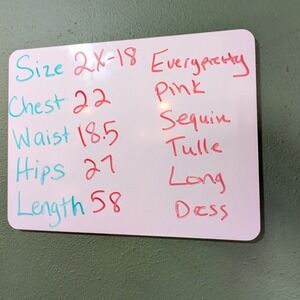 Size 2X-18
Chest 22
Waist 18.5
Hips 27
Length 58
Everypretty
Pink
Sequin
Tulle
Long
Dress